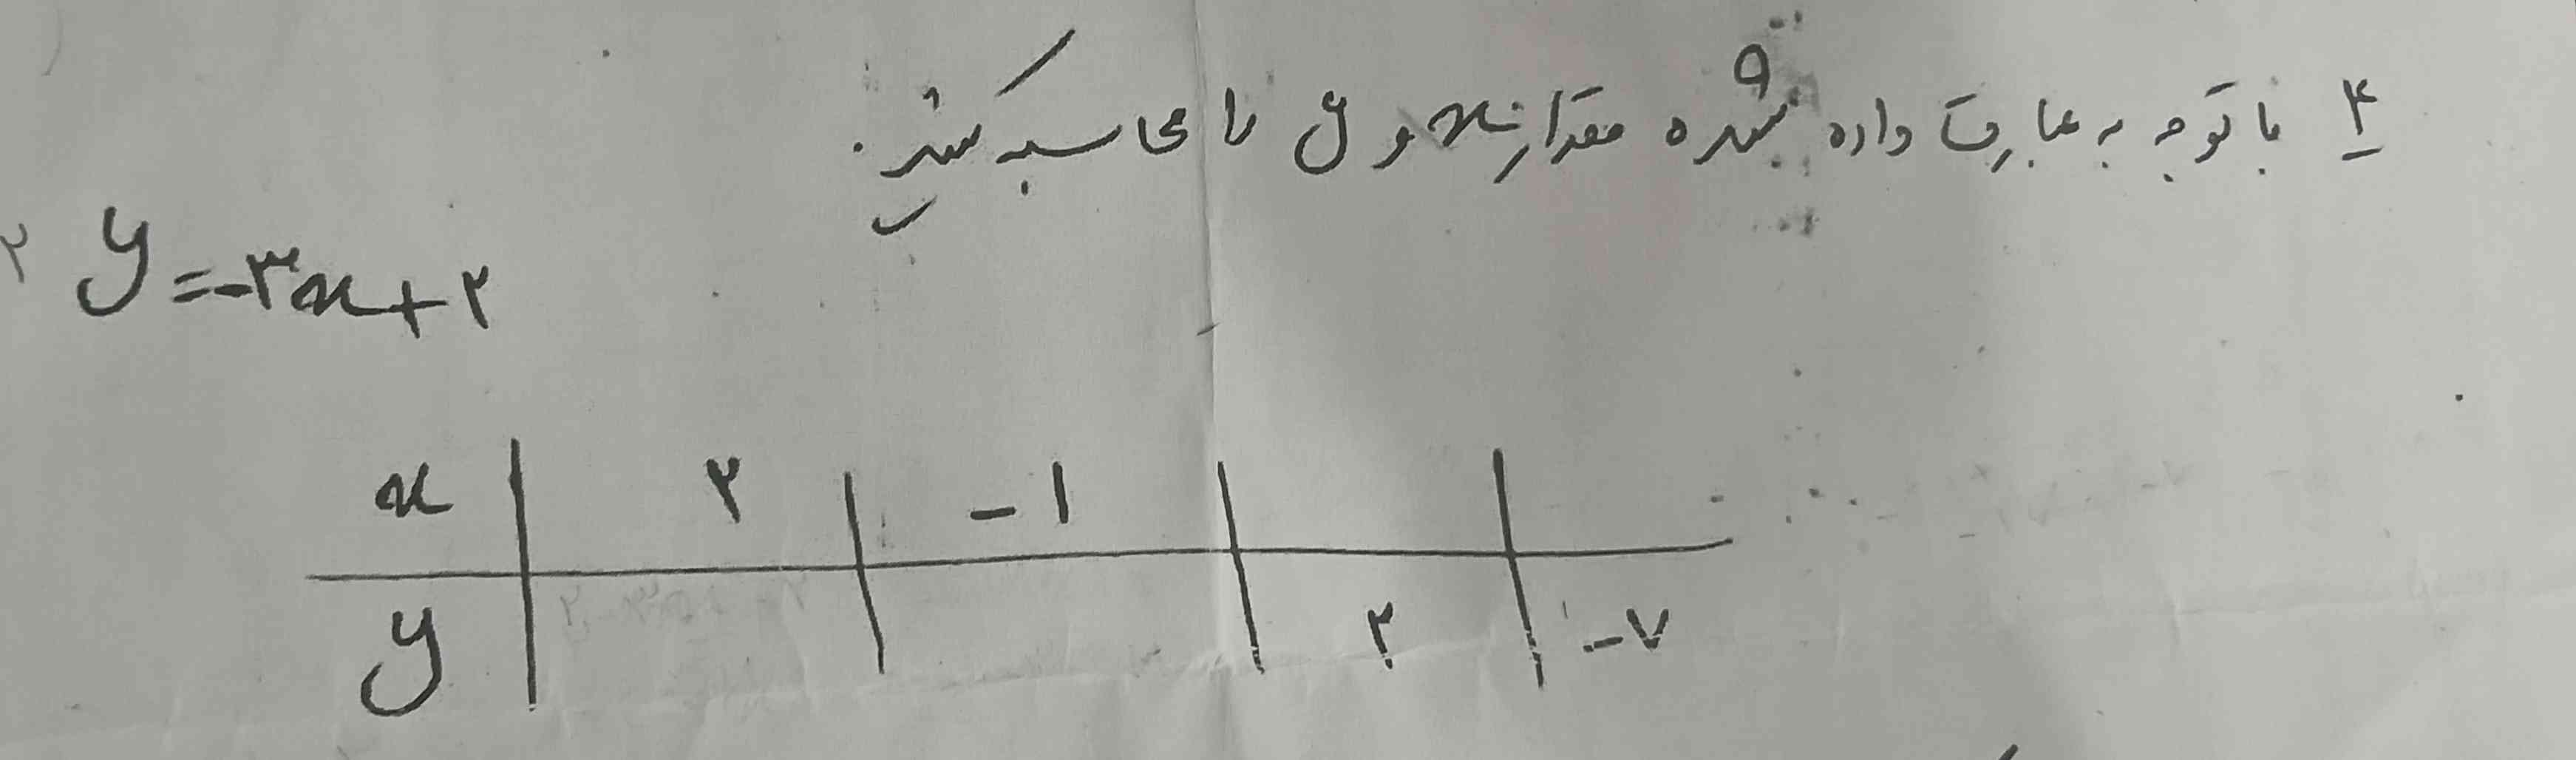 ۴ با توجه به عبارت داده شده مقدار x و y را محاسبه کنید.
۲ y = -۳x + ۲
x | ۲ | -۱ | |
y | | | ۲ | -۷